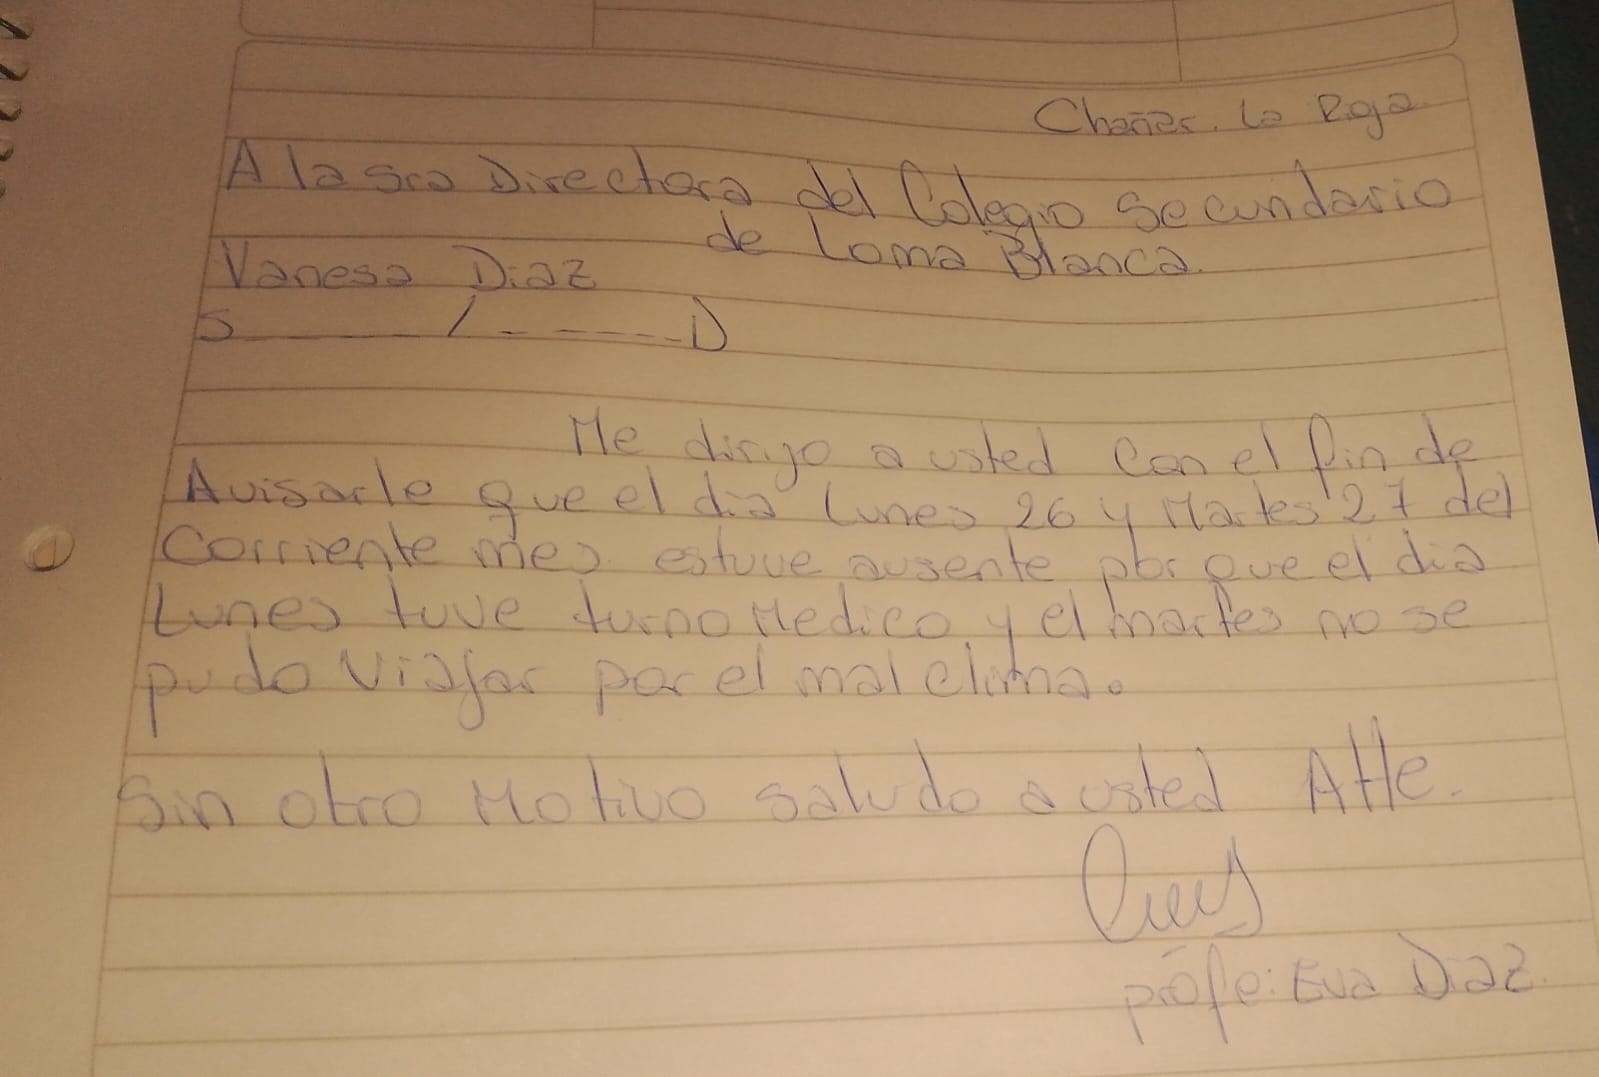 Chañar. La Rioja
A la Sra Directora del Colegio Secundario
de Loma Blanca.
Vanesa Diaz
S______/_._____D
Me dirijo a usted con el fin de
Avisarle que el día lunes 26 y Martes 27 del
Corriente mes estuve ausente por que el dia
Lunes tuve turno Medico y el martes no se
pudo viajar por el mal clima.
Sin otro Motivo saludo a usted Atte.
profe: Eva Diaz.